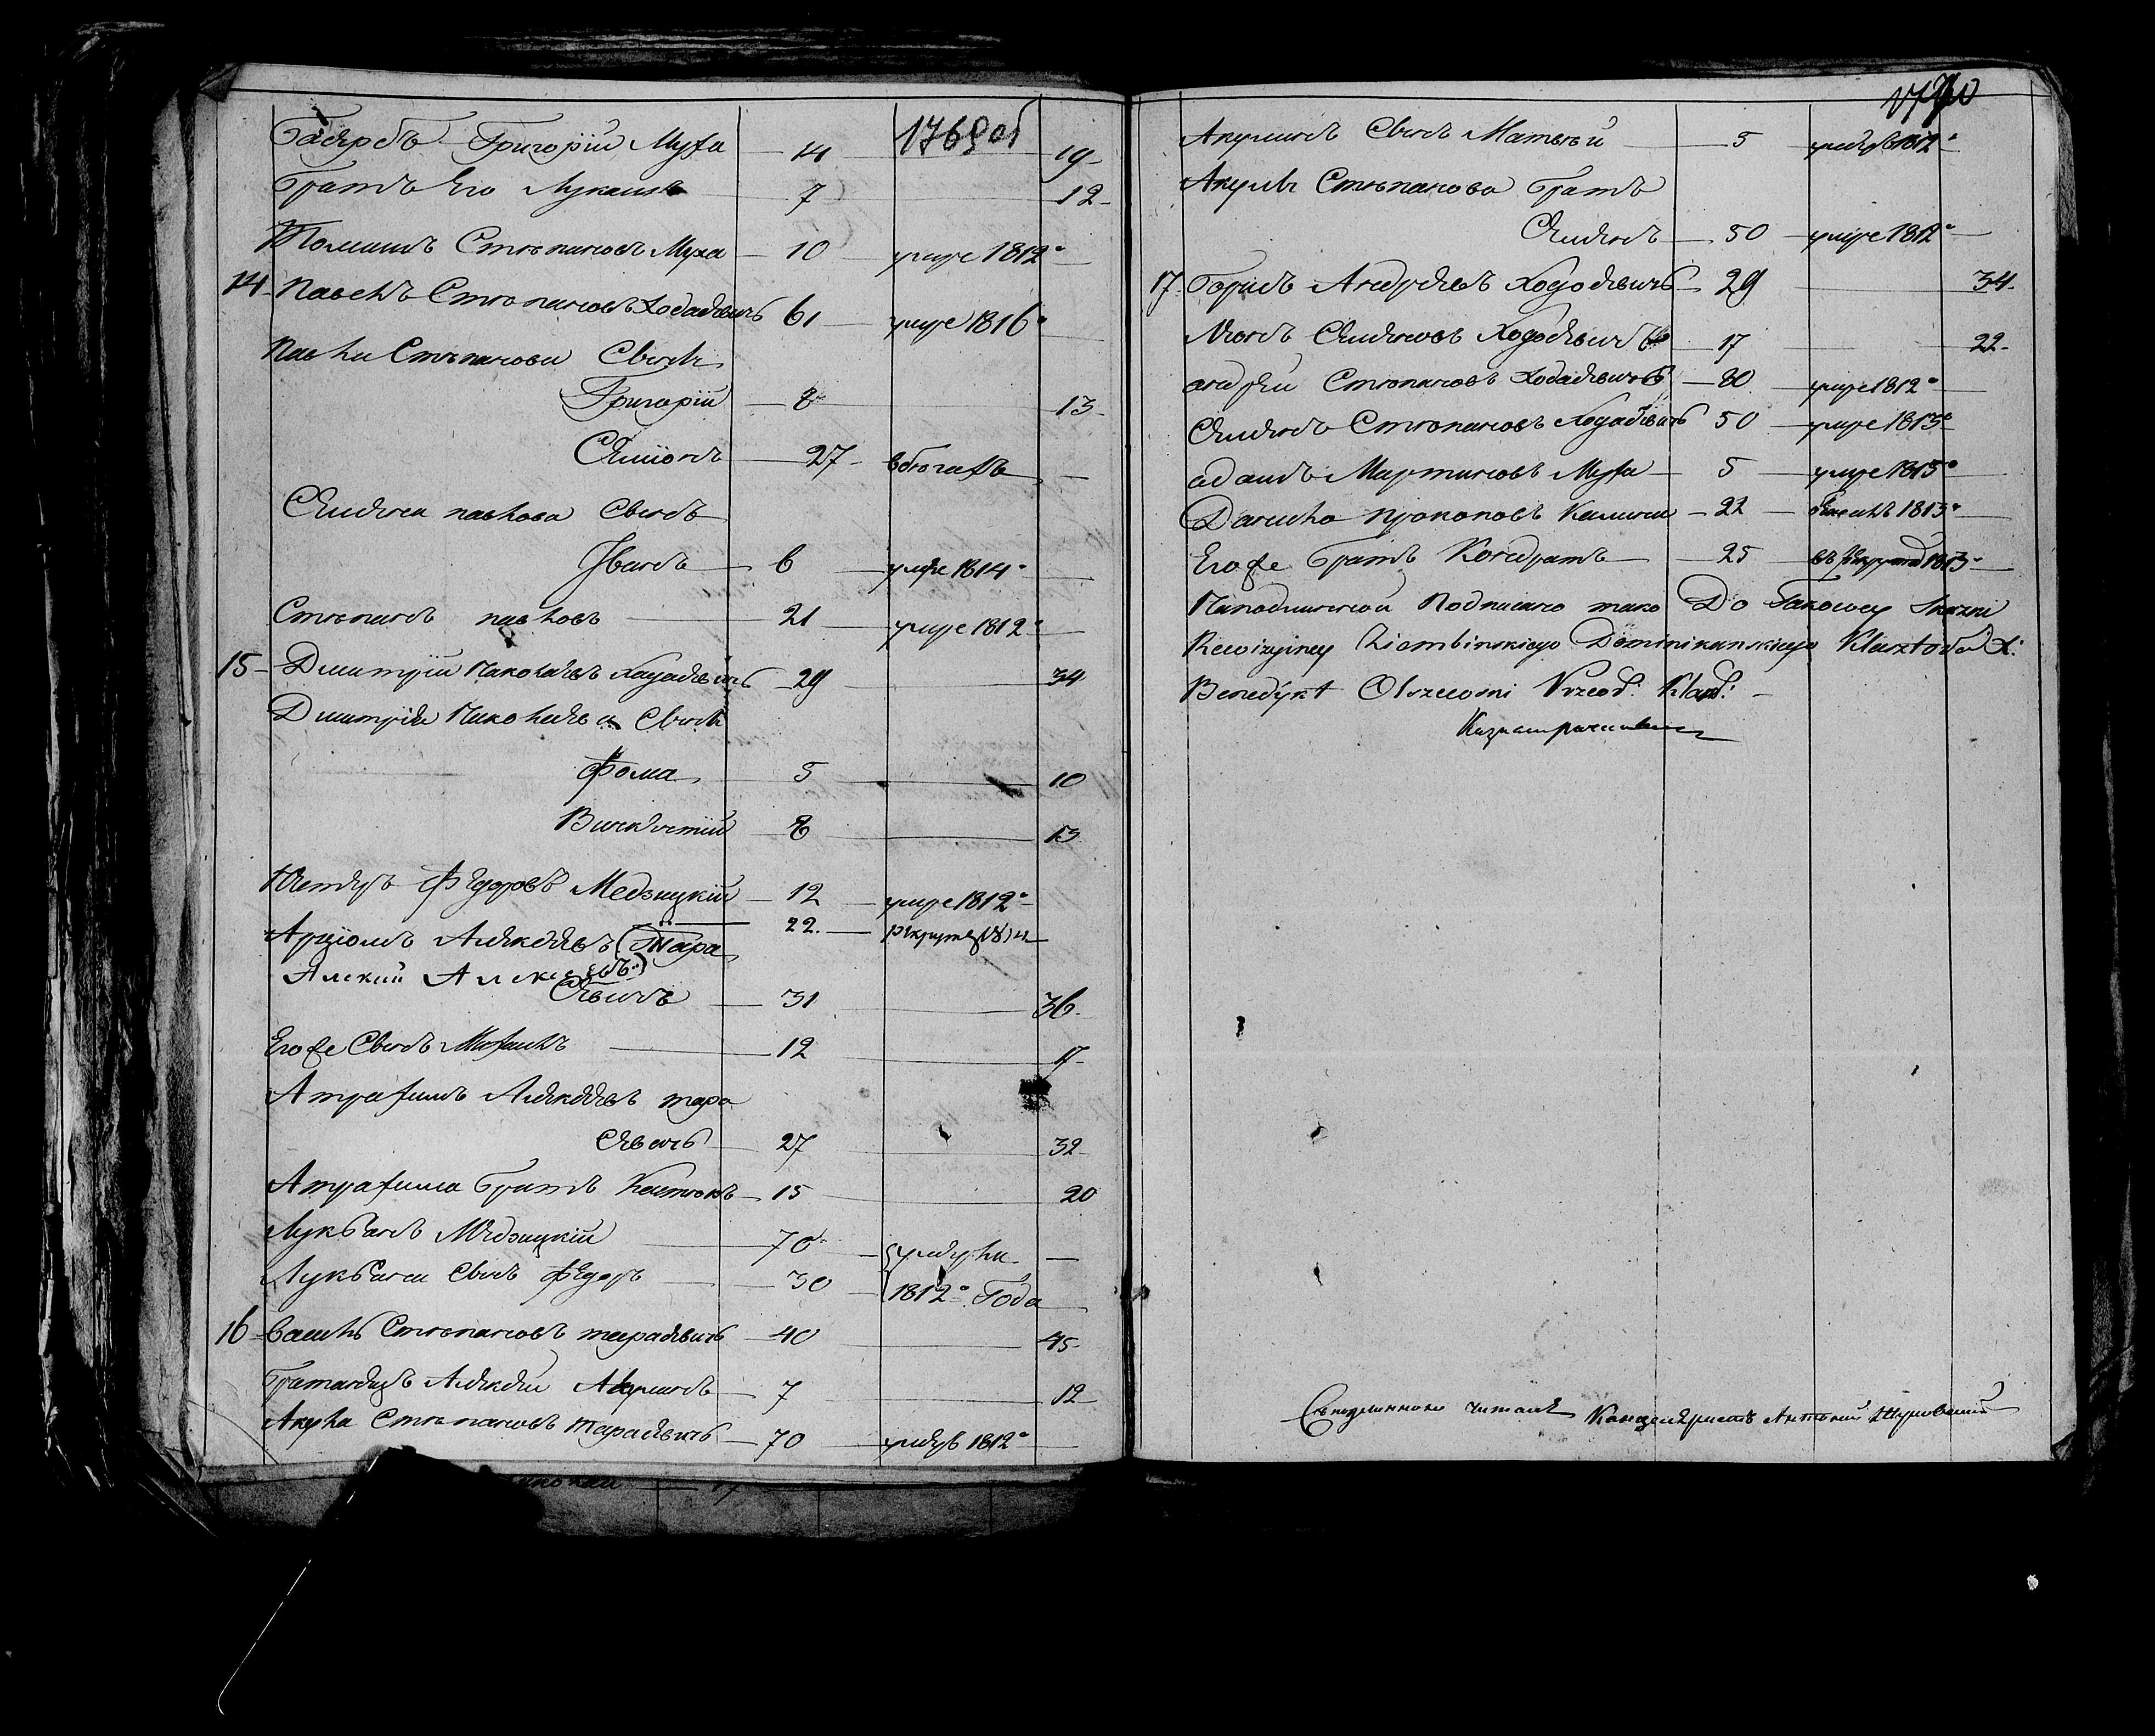 1769 об
Григорій Муха — 14 — 19
Братъ Его Лукашъ — 7 — 12
Томашъ Степановъ Муха — 10 — умре 1812°
14 Павелъ Степановъ Ходасевичь 61 — умре 1816°
Павла Степанова Сыны
Григорій — 8 — 13
Семіонъ — 27 — в бегахъ —
Семиона павлова Сынъ
Иванъ — 6 — умре 1814°
Степанъ павловъ — 21 — умре 1812°
15 — Дмитрій Николаевъ Хадасевичь — 29 — 34
Дмитрія Николаева Сыны
Фома — 5 — 10
Викентій — 8 — 13
Петръ Федоровъ Медзицкій — 12 — умре 1812°
Арціомъ Алексеевъ (Тара — 22. — рекрут
Алексій Алексеевъ)
Севичъ — 31 — 36
Его же Сынъ Михаилъ — 12 — 17
Атрахимъ Алексеевъ тара
севичь — 27 — 32
Атрахима братъ Кастюкъ — 15 — 20
Лукьянъ Медзицкій — 70 — умерли —
Лукьяна Сынъ Федоръ — 30 — 1812° Года
16 — Василь Степановъ тарасевичь — 40 — 45
Братанецъ Алексей Акулинъ — 7 — 12
Акула Степановъ Тарасевичь — 70 — умеръ 1812°
1770
Акулинъ Сынъ Матвей — 5 — умеръ 1812°
Акулы Степанова Братъ
Семионъ — 50 — умре 1812° —
17 Борисъ Андреевъ Ходосевичь — 29 — 34
Семионовъ Ходосевичь — 17 — 22
андрей Степановъ Ходасевичь — 80 — умре 1812°
Семионъ Степановъ Ходасевичь 50 — умре 1813°
адамъ Мартиновъ Муха — 5 — умре 1815°
Данило Прокоповъ Калина — 22 — 1813°
Его же Братъ Кондратъ — 25 — въ рекруты 1813°
На подлинной Подписано тако Do Takowey Skazki
Rewizyiney Ziembinskiego Dominikanskiego Klasztoru X:
Benedykt Olszewski Przeod: Klasz: —
Съ подлиннымъ читалъ Канцеляристъ Антоній